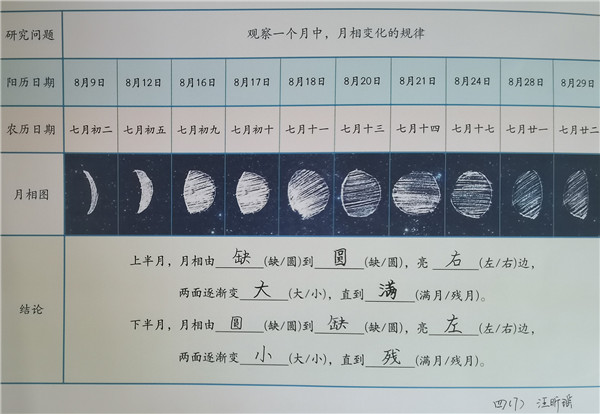 研究问题 观察一个月中，月相变化的规律
阳历日期 8月9日 8月12日 8月16日 8月17日 8月18日 8月20日 8月21日 8月24日 8月28日 8月29日
农历日期 七月初二 七月初五 七月初九 七月初十 七月十一 七月十三 七月十四 七月十七 七月廿一 七月廿二
月相图
结论
上半月，月相由缺(缺/圆)到圆(缺/圆)，亮右(左/右)边，
两面逐渐变大(大/小)，直到满(满月/残月)。
下半月，月相由圆(缺/圆)到缺(缺/圆)，亮左(左/右)边，
两面逐渐变小(大/小)，直到残(满月/残月)。
四(1) 汪昕瑶